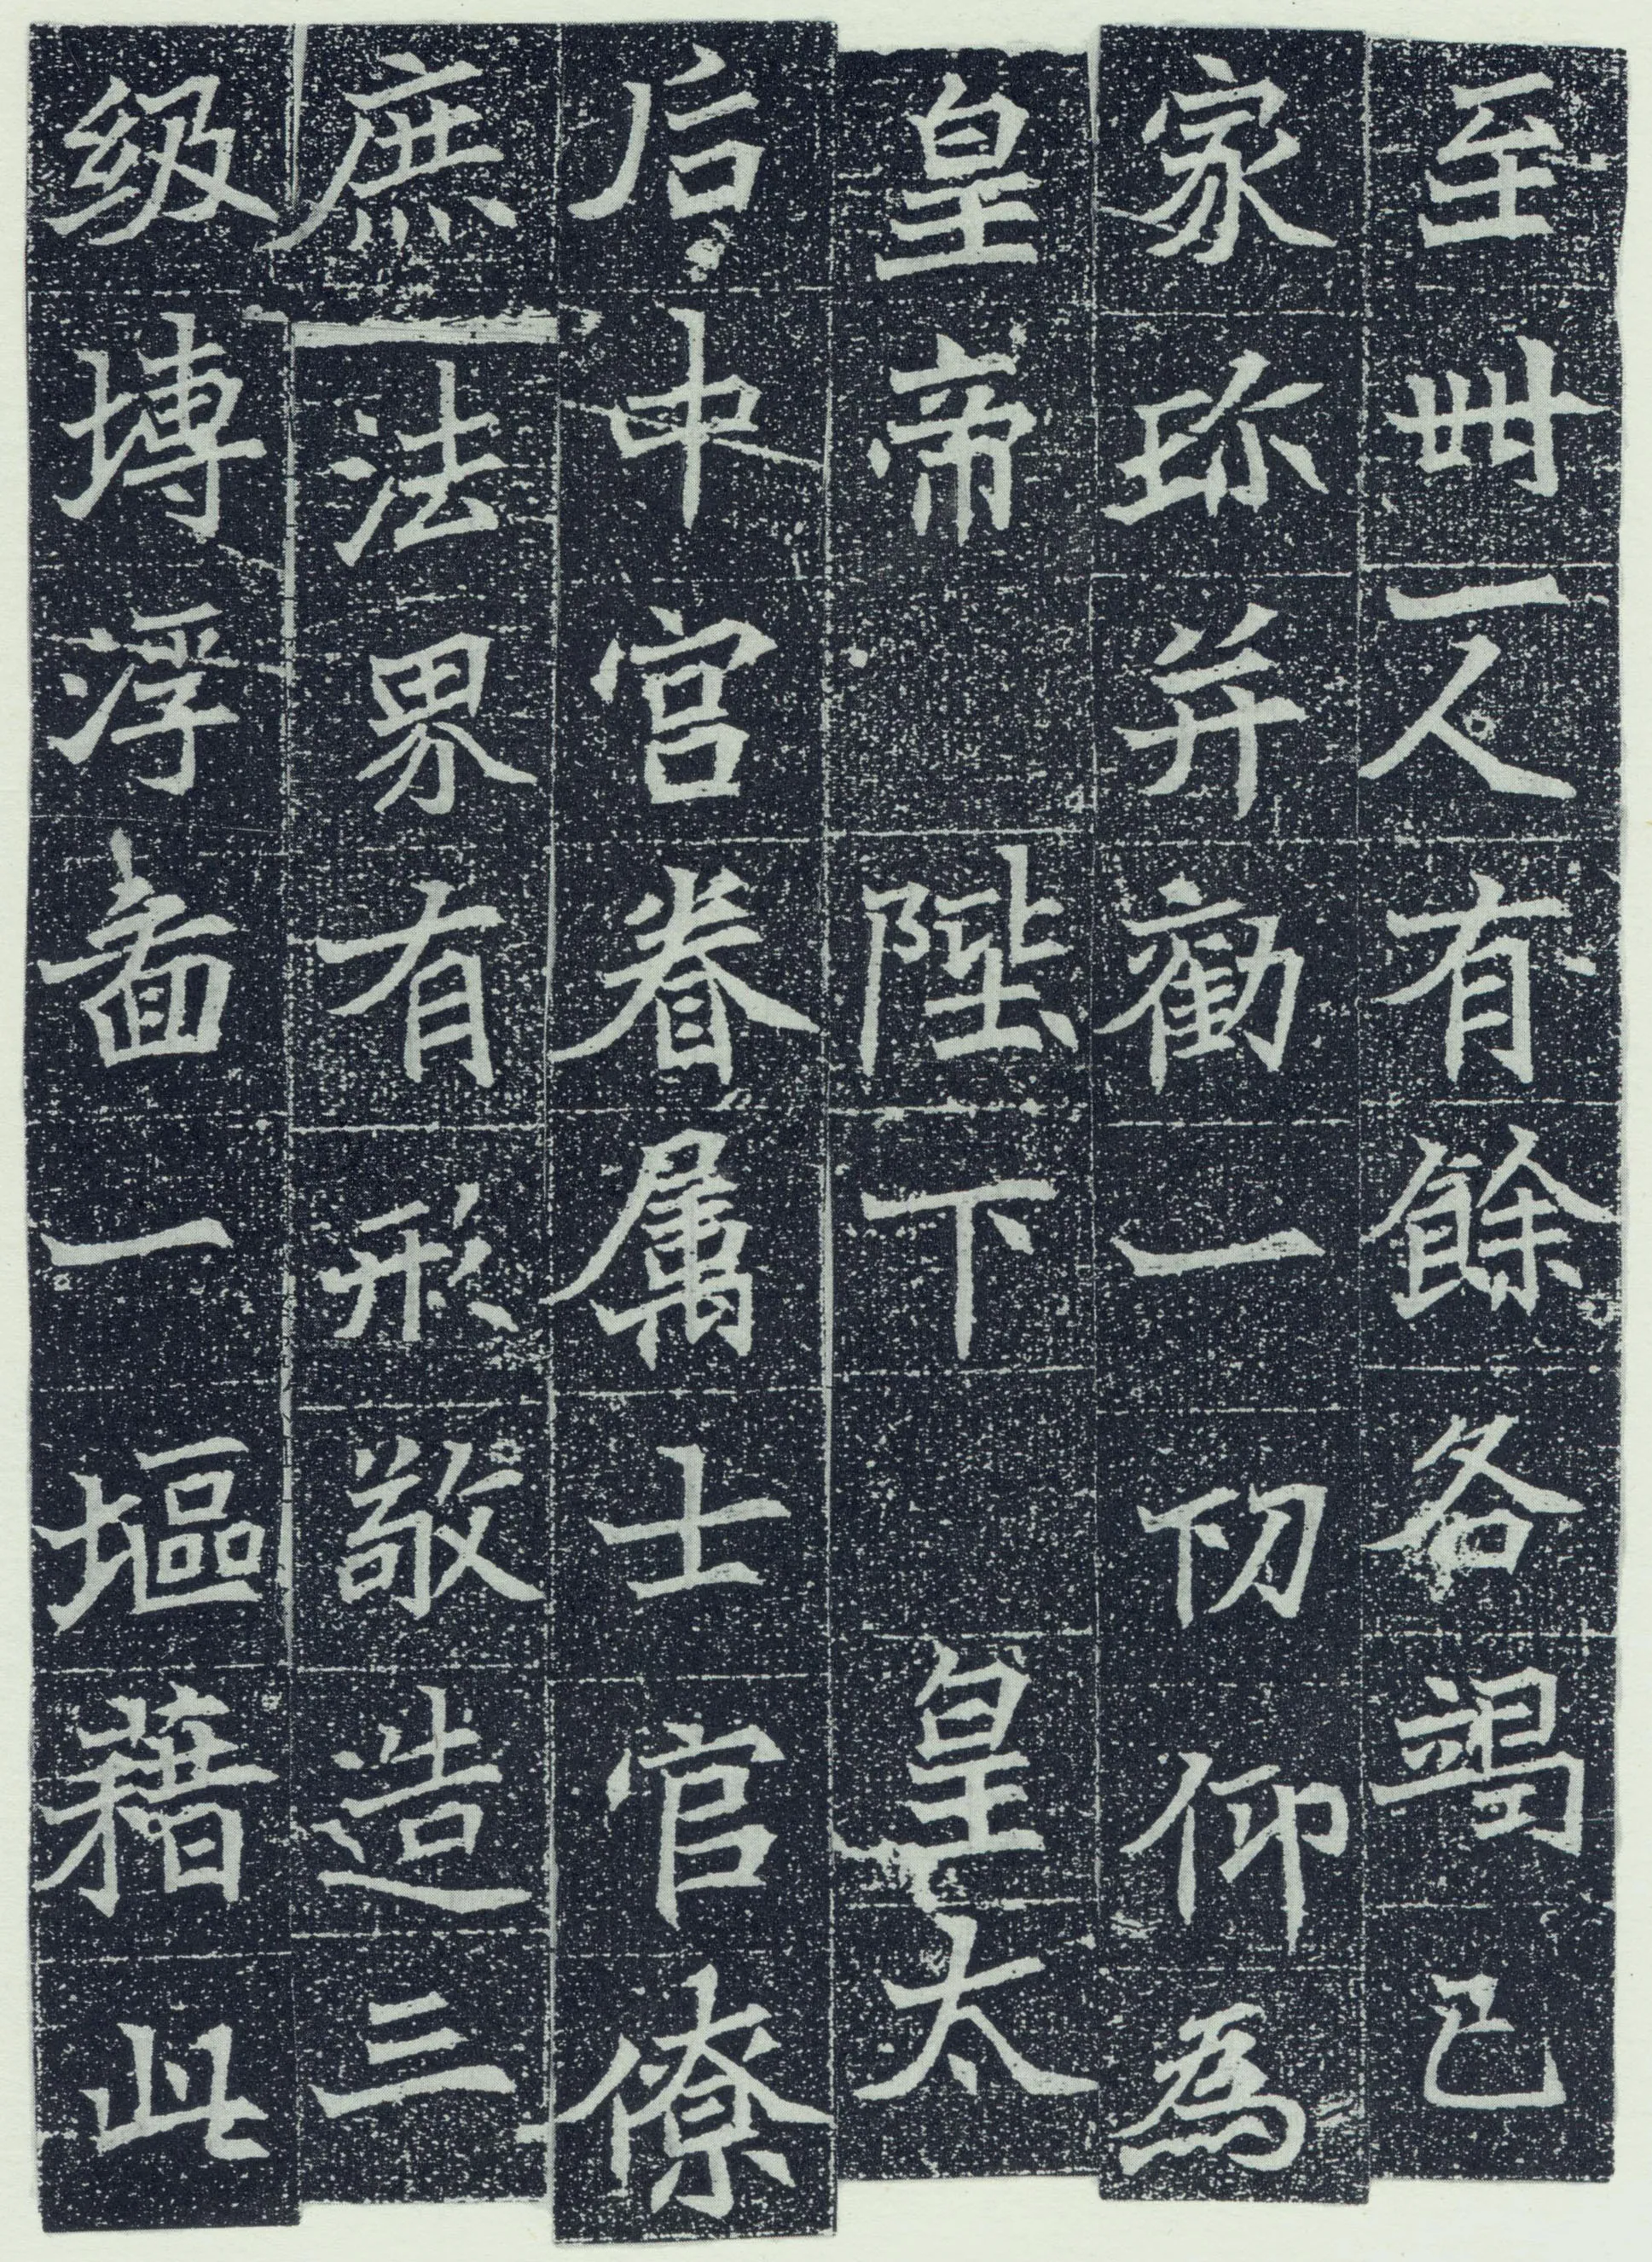 至卌一人有餘各竭己
家珎并勸一切仰為
皇帝 陛下 皇太
后中宫眷属士官僚
庶法界有形敬造三
級塼浮啚一塸藉此